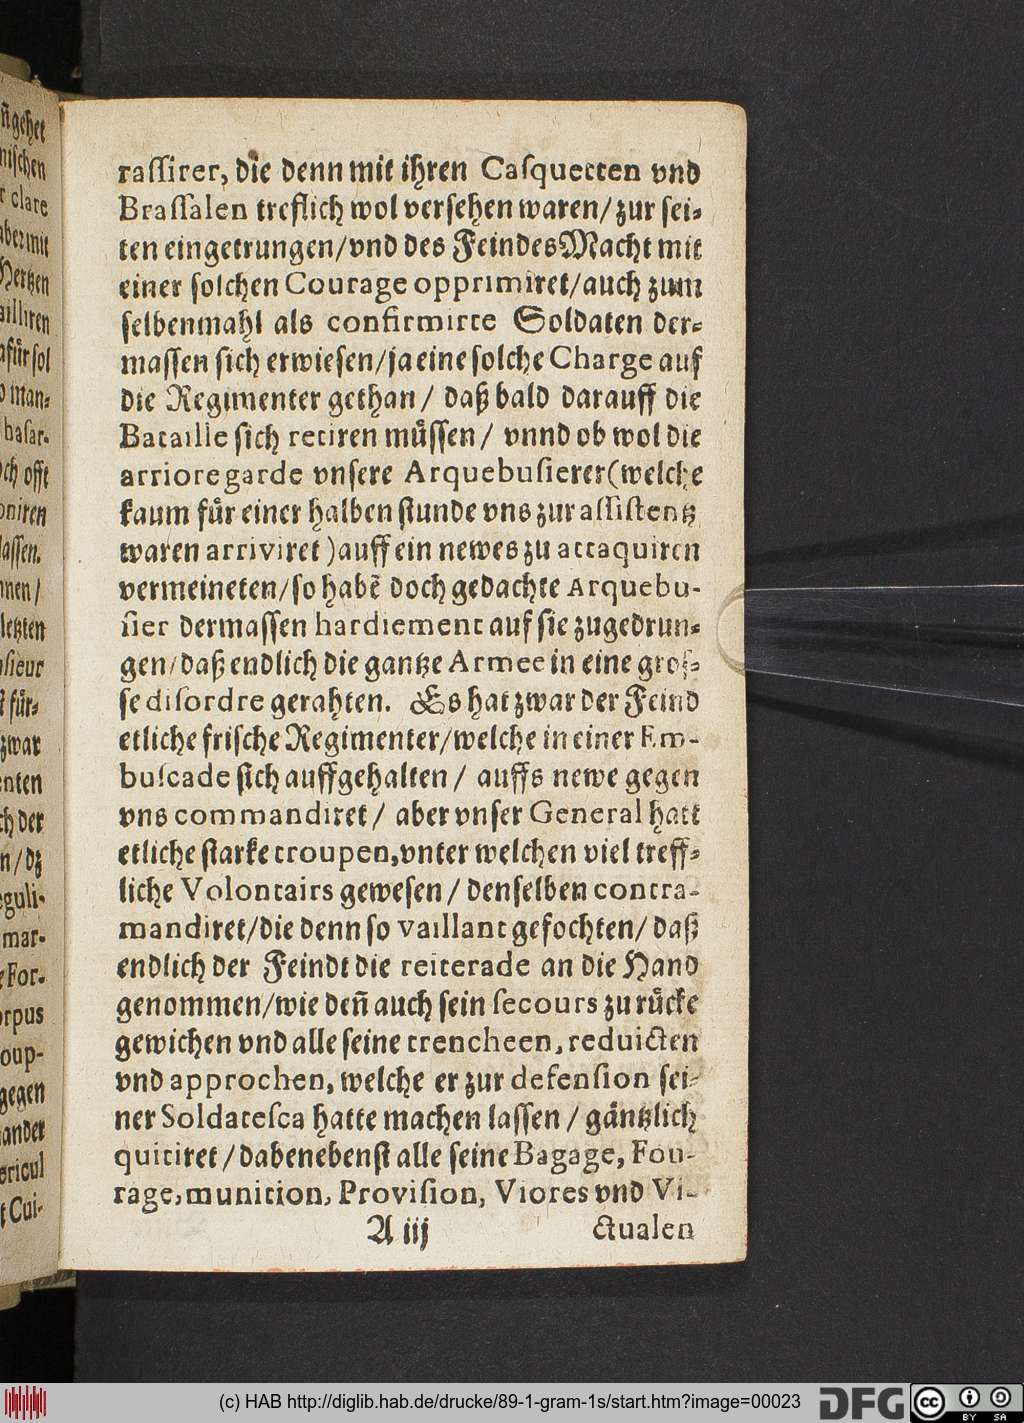 raſſirer, die denn mit ihren Caſquetten vnd
Braſſalen treflich wol verſehen waren/ zur ſei⸗
ten eingetrungen/vnd des Feindes Macht mit
einer ſolchen Courage opprimiret/auch zum
ſelbenmahl als confirmirte Soldaten der⸗
maſſen ſich erwieſen/ja eine ſolche Charge auf
die Regimenter gethan / daß bald darauff die
Bataille ſich retiren muͤſſen / vnnd ob wol die
arrioregarde vnſere Arquebuſierer(welche
kaum fuͤr einer halben ſtunde vns zur aſſiſtentz
waren arriviret )auff ein newes zu attaquiren
vermeineten/ſo habẽ doch gedachte Arquebu-
ſier dermaſſen hardiement auf ſie zugedrun⸗
gen/daß endlich die gantze Armee in eine groſ⸗
ſe diſordre gerahten. Es hat zwar der Feind
etliche friſche Regimenter/welche in einer Em-
buſcade ſich auffgehalten / auffs newe gegen
vns commandiret / aber vnſer General hatt
etliche ſtarke troupen,vnter welchen viel treff⸗
liche Volontairs geweſen / denſelben contra-
mandiret/die denn ſo vaillant gefochten/ daß
endlich der Feindt die reiterade an die Hand
genommen/wie deñ auch ſein ſecours zu ruͤcke
gewichen vnd alle ſeine trencheen, reduicten
vnd approchen, welche er zur defenſion ſei⸗
ner Soldateſca hatte machen laſſen / gaͤntzlich
quitiret /dabenebenſt alle ſeine Bagage, Fou-
rage,munition, Proviſion, Viores vnd Vi-
A iij ctualen
ñ gehet
niſchen
r clare
aber mit
Hertzen
ailliren
afuͤr ſol
o man⸗
haſar-
och offt
oniren
laſſen.
nnen/
letzten
nſieur
ſt fuͤr⸗
zwar
enten
ch der
n/dz
eguli-
mar-
e For-
orpus
oup-
gegen
ander
ericul
t Cui-
(c) HAB http://diglib.hab.de/drucke/89-1-gram-1s/start.htm?image=00023
DFG
cc
BY SA